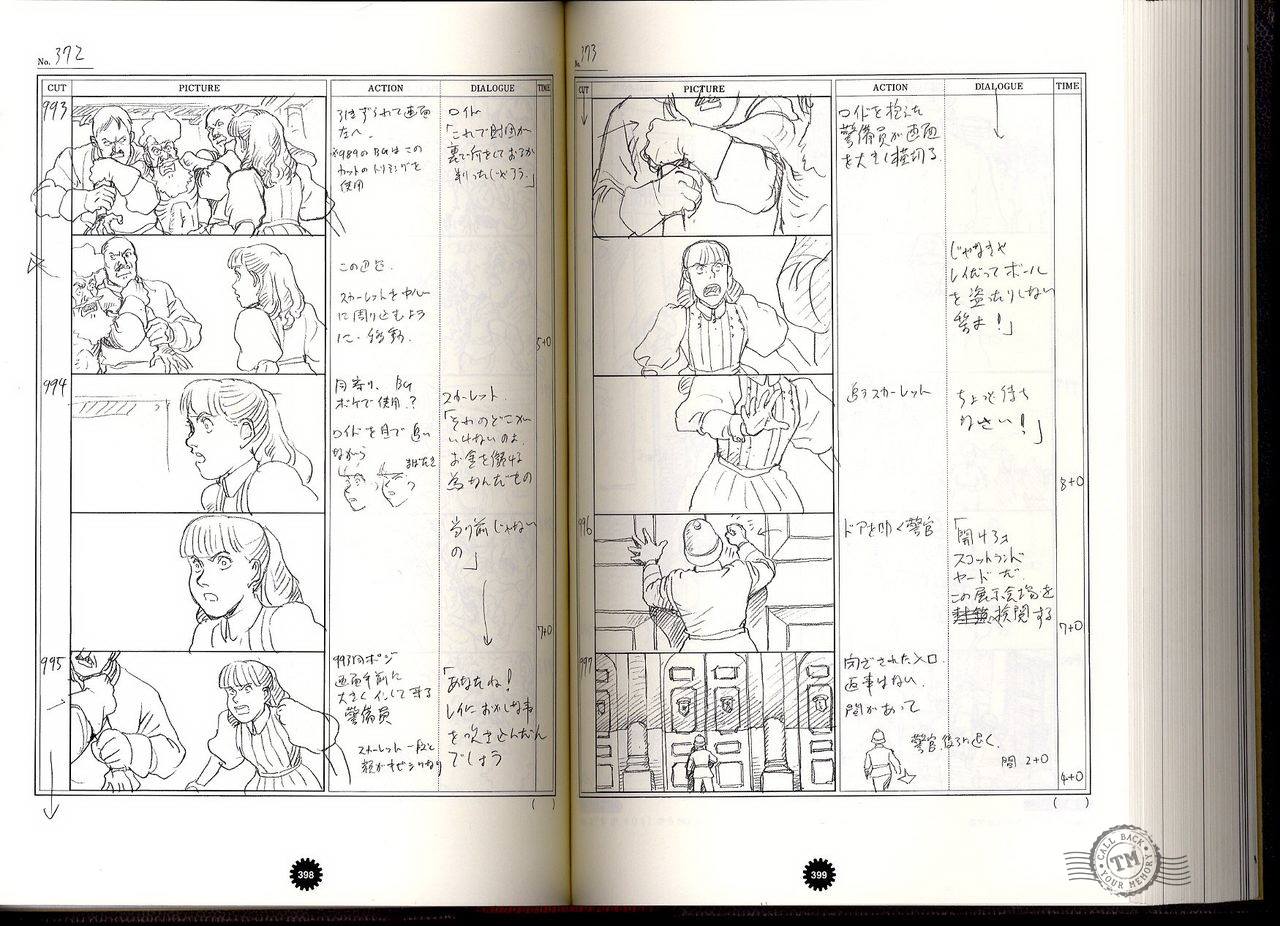 No. 372
CUT PICTURE ACTION DIALOGUE TIME
993
引きずられて画面
左へ。
※989のBGはこの
カットのトリミングを
使用
ロイド
「これで財団が
裏で何をしておるか
判ったじゃろう。」
この辺で
スカーレットを中心
に周り込むよう
に、移動。
5+0
994
同寄り、BG
ボケで使用?
ロイドを目で追い
ながら
まばたき
スカーレット
「それのどこが
いけないのよ
お金を儲ける
為なんだもの
当り前じゃない
の」
7+0
995
993同ポジ
画面手前に
大きくインして来る
警備員
スカーレット 一段と
「あなたね!
レイにおかしな事
を吹き込んだん
でしょう
( )
398
373
CUT PICTURE ACTION DIALOGUE TIME
ロイドを抱えた
警備員が画面
を大きく横切る
じゃなきゃ
レイだってボール
を盗んだりしない
筈よ!」
追うスカーレット
ちょっと待ち
なさい!」
8+0
996
ドアを叩く警官
「開けろ!!
スコットランド
ヤードだ。
この展示会場を
検閲する
7+0
997
閉ざされた入口。
返事はない。
間があって
警官、後ろに退く。
間 2+0
4+0
( )
399
CALL BACK
TM
YOUR MEMORY